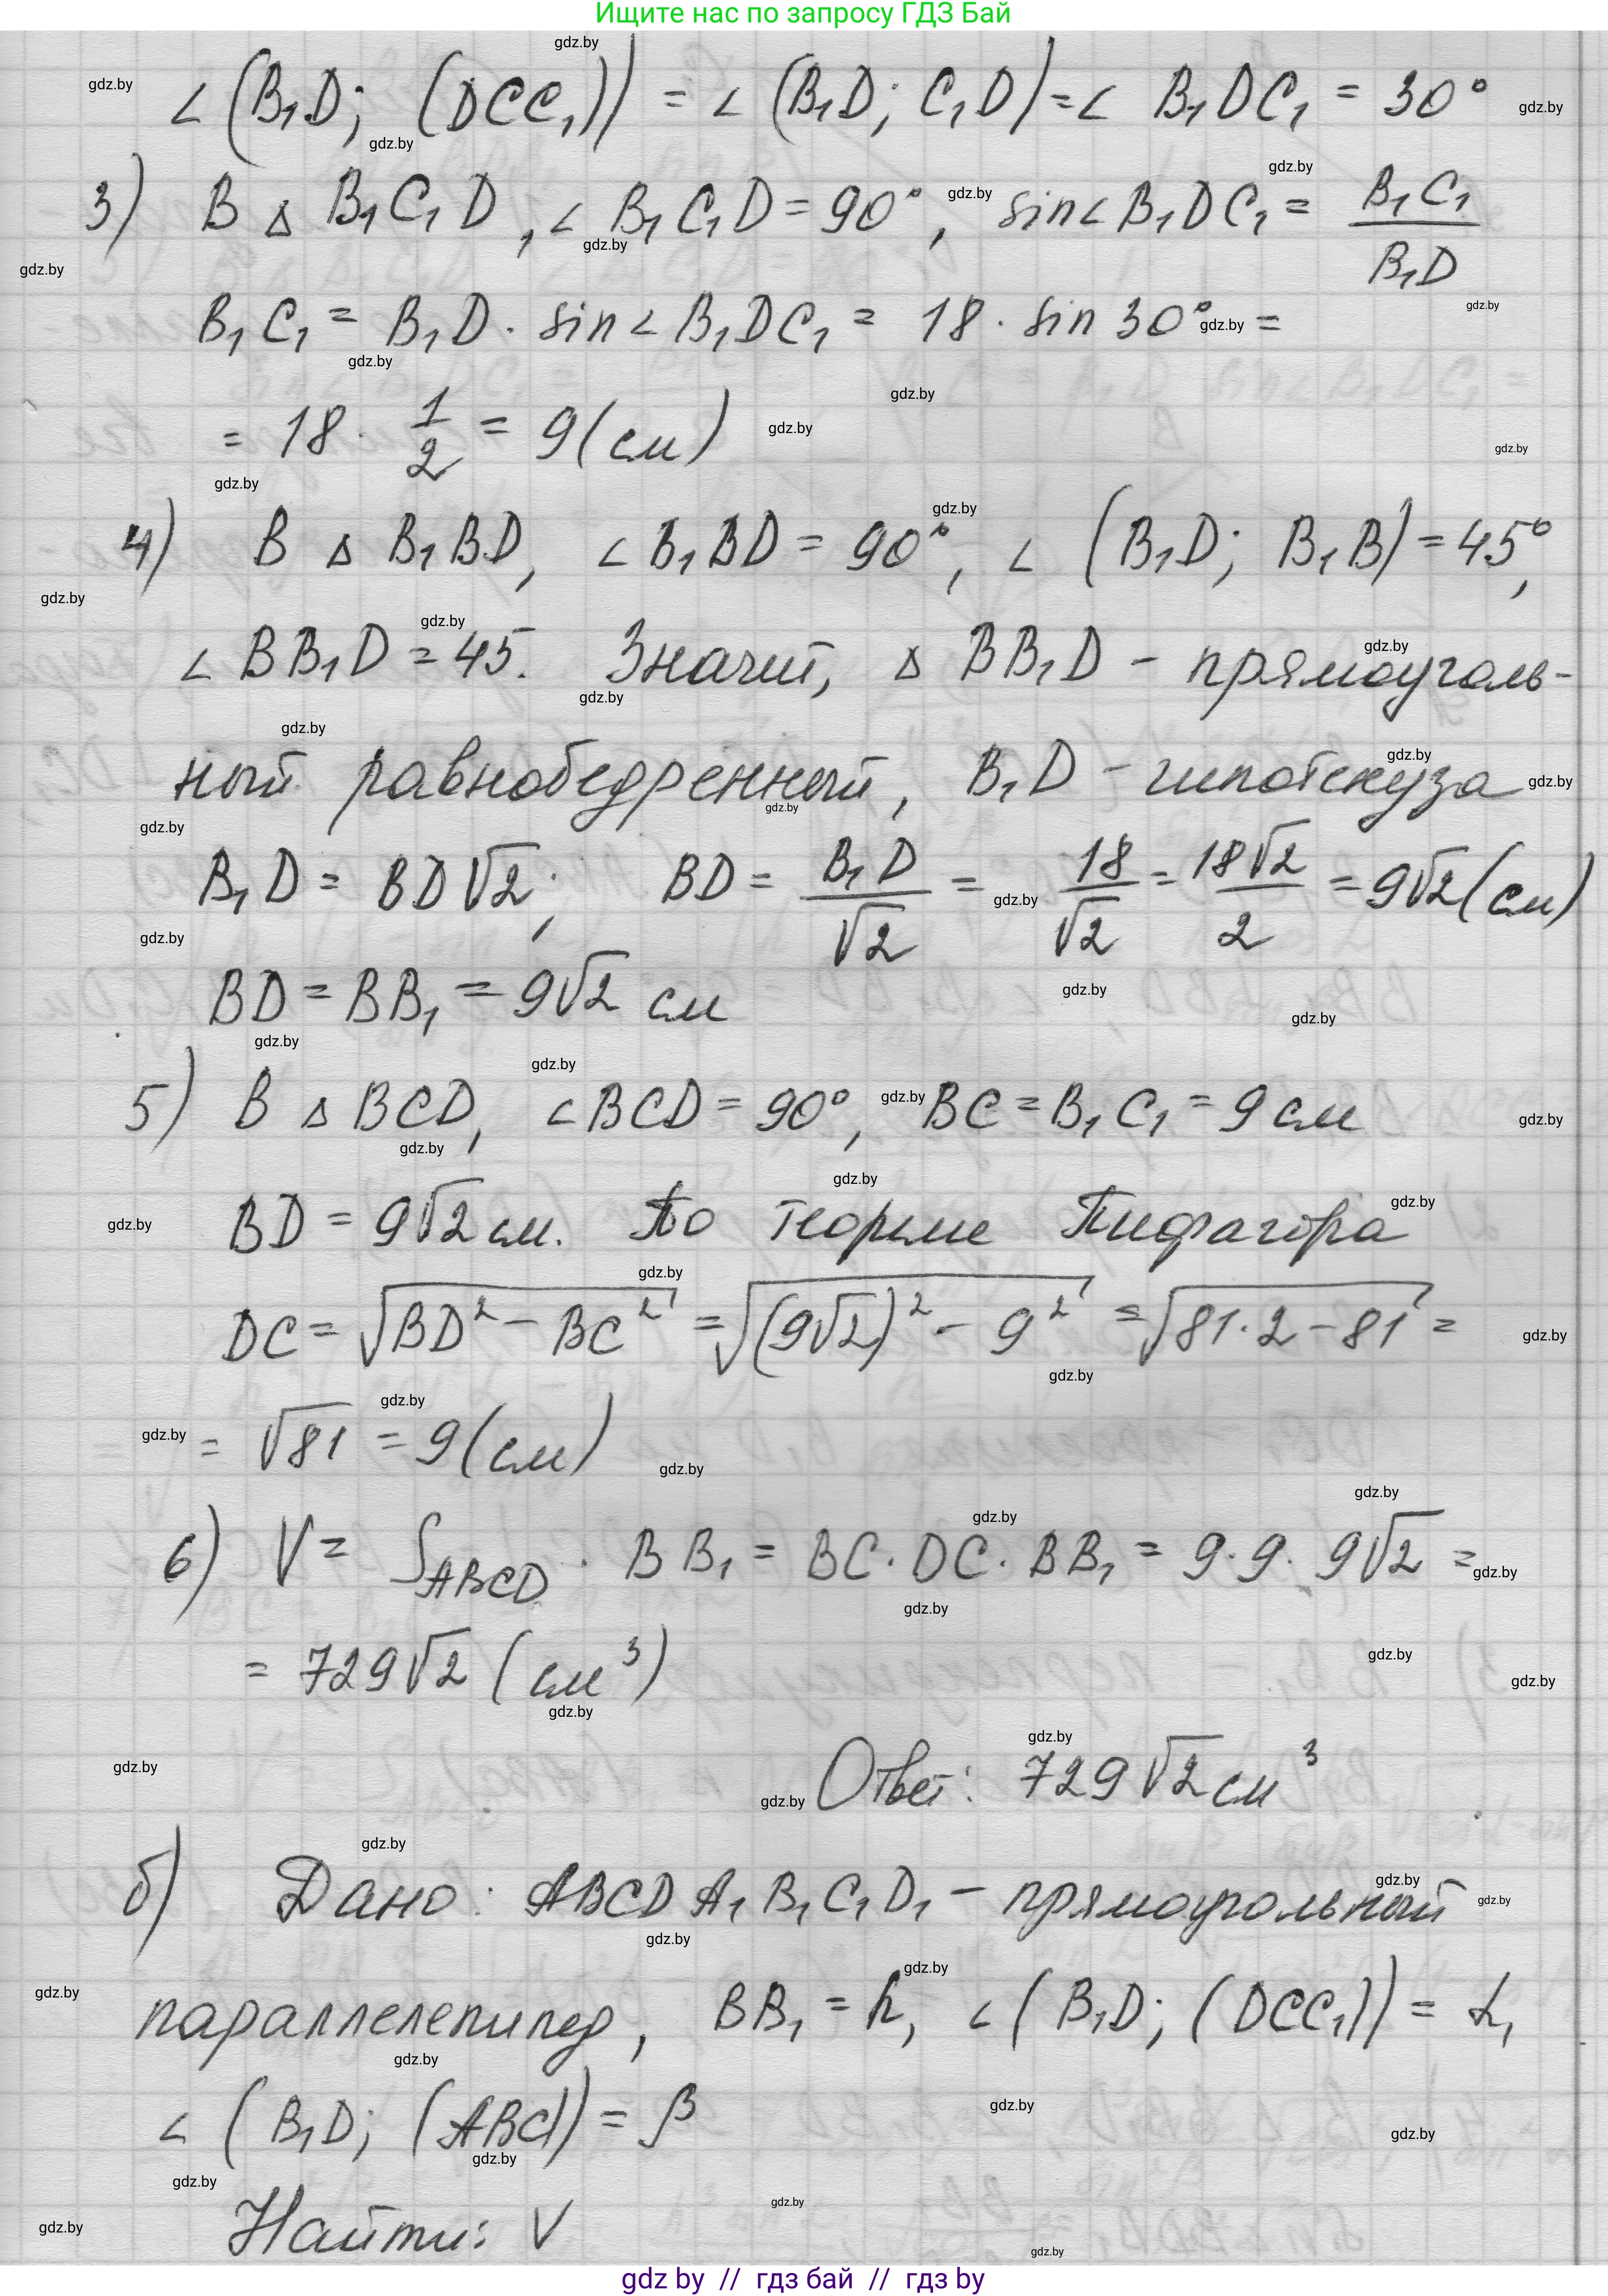 Ищите нас по запросу ГДЗ Бай
∠(B₁D; (DCC₁)) = ∠(B₁D; C₁D) = ∠ B₁DC₁ = 30°
3) В △ B₁C₁D, ∠ B₁C₁D = 90°, sin∠B₁DC₁ = B₁C₁/B₁D
B₁C₁ = B₁D · sin∠B₁DC₁ = 18 · sin 30° =
= 18 · 1/2 = 9 (см)
4) В △ B₁BD, ∠B₁BD = 90°, ∠ (B₁D; B₁B) = 45°,
∠BB₁D = 45. Значит, △ BB₁D - прямоуголь-
ный равнобедренный, B₁D - гипотенуза
B₁D = BD√2; BD = B₁D/√2 = 18/√2 = 18√2/2 = 9√2 (см)
BD = BB₁ = 9√2 см
5) В △ BCD, ∠BCD = 90°, BC = B₁C₁ = 9 см
BD = 9√2 см. По теореме Пифагора
DC = √(BD² - BC²) = √((9√2)² - 9²) = √(81·2 - 81) =
= √81 = 9 (см)
6) V = S_ABCD · BB₁ = BC · DC · BB₁ = 9·9·9√2 =
= 729√2 (см³)
Ответ: 729√2 см³
б) Дано: ABCDA₁B₁C₁D₁ - прямоугольный
параллелепипед, BB₁ = h, ∠(B₁D; (DCC₁)) = α,
∠ (B₁D; (ABC)) = β
Найти: V
gdz by // гдз бай // гдз by